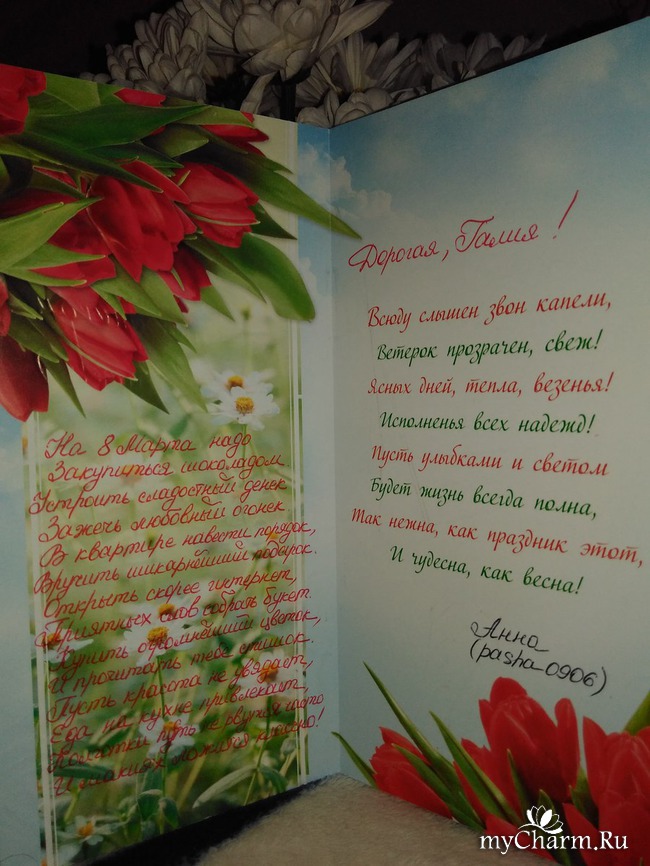 На 8 Марта надо
Закупиться шоколадом
Устроить сладостный денек
Зажечь любовный огонек
В квартире навести порядок,
Вручить шикарнейший подарок.
Открыть скорее интернет,
Приятных слов собрать букет
Купить огромнейший цветок,
И прочитать тебе стишок.
Пусть красота не увядает,
Еда на кухне привлекает,
Колготки пусть не рвутся часто
И макияж ложится классно!
Дорогая, Галия!
Всюду слышен звон капели,
Ветерок прозрачен, свеж!
Ясных дней, тепла, везенья!
Исполненья всех надежд!
Пусть улыбками и светом
Будет жизнь всегда полна,
Так нежна, как праздник этот,
И чудесна, как весна!
Анна
(pasha_0906)
myCharm.Ru